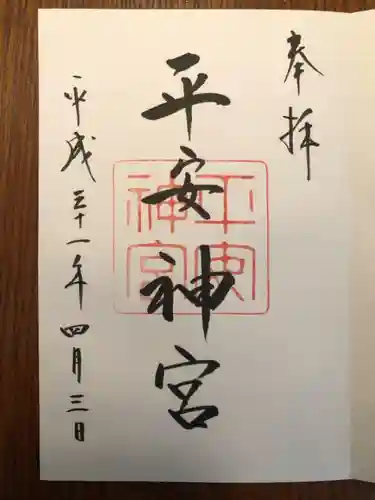 奉拝
平安神宮
平安神宮
平成三十一年四月三日